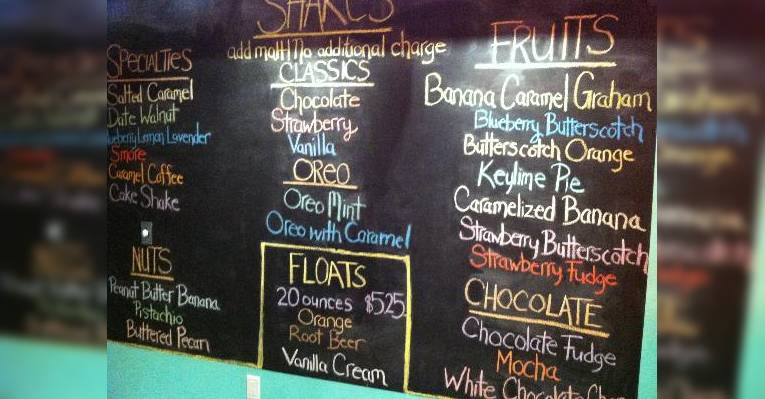 SHAKES
add malt no additional charge
Specialties
Salted Caramel
Date Walnut
Blueberry Lemon Lavender
Smore
Caramel Coffee
Cake Shake
NUTS
Peanut Butter Banana
Pistachio
Buttered Pecan
CLASSICS
Chocolate
Strawberry
Vanilla
OREO
Oreo Mint
Oreo with Caramel
FLOATS
20 ounces $5.25
Orange
Root Beer
Vanilla Cream
FRUITS
Banana Caramel Graham
Blueberry Butterscotch
Butterscotch Orange
Keylime Pie
Caramelized Banana
Strawberry Butterscotch
Strawberry Fudge
CHOCOLATE
Chocolate Fudge
Mocha
White Chocolate